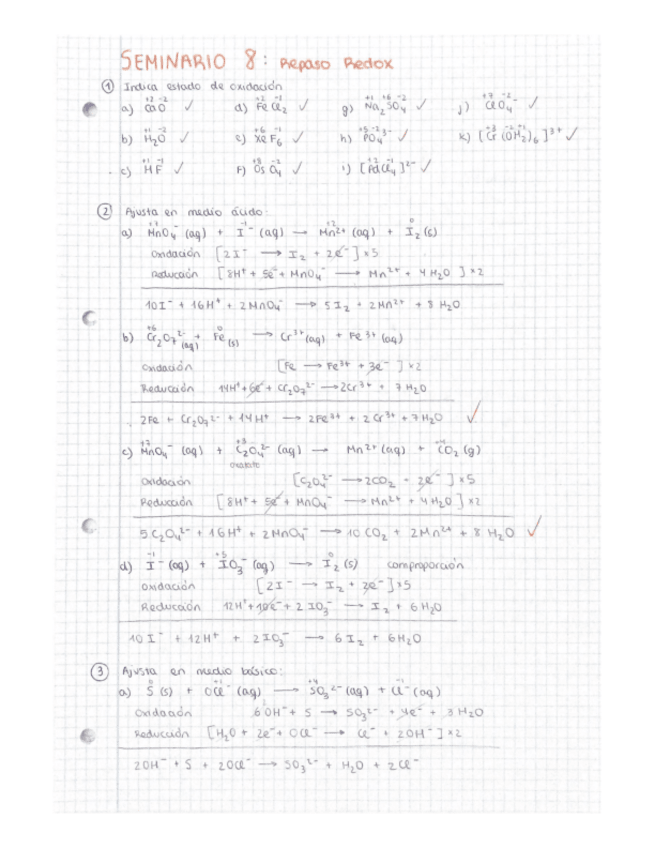 SEMINARIO 8: Repaso Redox
① Indica estado de oxidación
a) CaO ✓ d) FeCl₂ ✓ g) Na₂SO₄ ✓ j) ClO₄⁻ ✓
b) H₂O ✓ e) XeF₆ ✓ h) PO₄³⁻ ✓ k) [Cr(OH₂)₆]³⁺ ✓
c) HF ✓ f) OsO₄ ✓ i) [PdCl₄]²⁻ ✓
② Ajusta en medio ácido:
a) MnO₄⁻ (aq) + I⁻ (aq) → Mn²⁺ (aq) + I₂ (s)
Oxidación [2I⁻ → I₂ + 2e⁻] x5
Reducción [8H⁺ + 5e⁻ + MnO₄⁻ → Mn²⁺ + 4H₂O] x2
10I⁻ + 16H⁺ + 2MnO₄⁻ → 5I₂ + 2Mn²⁺ + 8H₂O
b) Cr₂O₇²⁻ (aq) + Fe (s) → Cr³⁺ (aq) + Fe³⁺ (aq)
Oxidación [Fe → Fe³⁺ + 3e⁻] x2
Reducción 14H⁺ + 6e⁻ + Cr₂O₇²⁻ → 2Cr³⁺ + 7H₂O
2Fe + Cr₂O₇²⁻ + 14H⁺ → 2Fe³⁺ + 2Cr³⁺ + 7H₂O ✓
c) MnO₄⁻ (aq) + C₂O₄²⁻ (aq) → Mn²⁺ (aq) + CO₂ (g)
oxalato
Oxidación [C₂O₄²⁻ → 2CO₂ + 2e⁻] x5
Reducción [8H⁺ + 5e⁻ + MnO₄⁻ → Mn²⁺ + 4H₂O] x2
5C₂O₄²⁻ + 16H⁺ + 2MnO₄⁻ → 10CO₂ + 2Mn²⁺ + 8H₂O ✓
d) I⁻ (aq) + IO₃⁻ (aq) → I₂ (s) comproporción
Oxidación [2I⁻ → I₂ + 2e⁻] x5
Reducción 12H⁺ + 10e⁻ + 2IO₃⁻ → I₂ + 6H₂O
10I⁻ + 12H⁺ + 2IO₃⁻ → 6I₂ + 6H₂O
③ Ajusta en medio básico:
a) S (s) + OCl⁻ (aq) → SO₃²⁻ (aq) + Cl⁻ (aq)
Oxidación 6OH⁻ + S → SO₃²⁻ + 4e⁻ + 3H₂O
Reducción [H₂O + 2e⁻ + OCl⁻ → Cl⁻ + 2OH⁻] x2
2OH⁻ + S + 2OCl⁻ → SO₃²⁻ + H₂O + 2Cl⁻